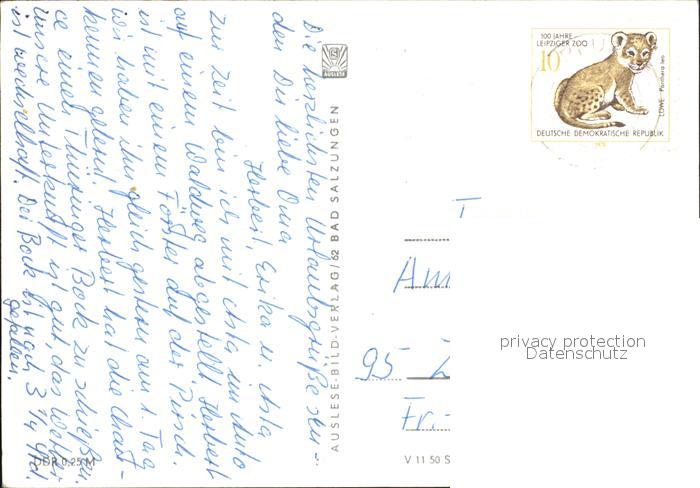 Die herzlichsten Urlaubsgrüße sen-
den Dir liebe Oma
Herbert, Erika u. Asta
Zur Zeit bin ich mit Asta im Auto
auf einem Waldweg abgestellt. Herbert
ist mit einem Förster auf der Pirsch.
Wir haben ihn gleich gestern am 1. Tag
kennen gelernt. Herbert hat die Chan-
ce einen Thüringer Bock zu schießen.
Unsere Unterkunft ist gut, das Wetter
ist wechselhaft. Der Bock ist nach 3 1/4 Std.
gefallen.
AUSLESE
AUSLESE-BILD-VERLAG, 62 BAD SALZUNGEN
DDR 0,25 M
V 11 50 S
100 JAHRE
LEIPZIGER ZOO
10
LÖWE Panthera leo
DEUTSCHE DEMOKRATISCHE REPUBLIK
T
Am
95
Fr.-
privacy protection
Datenschutz